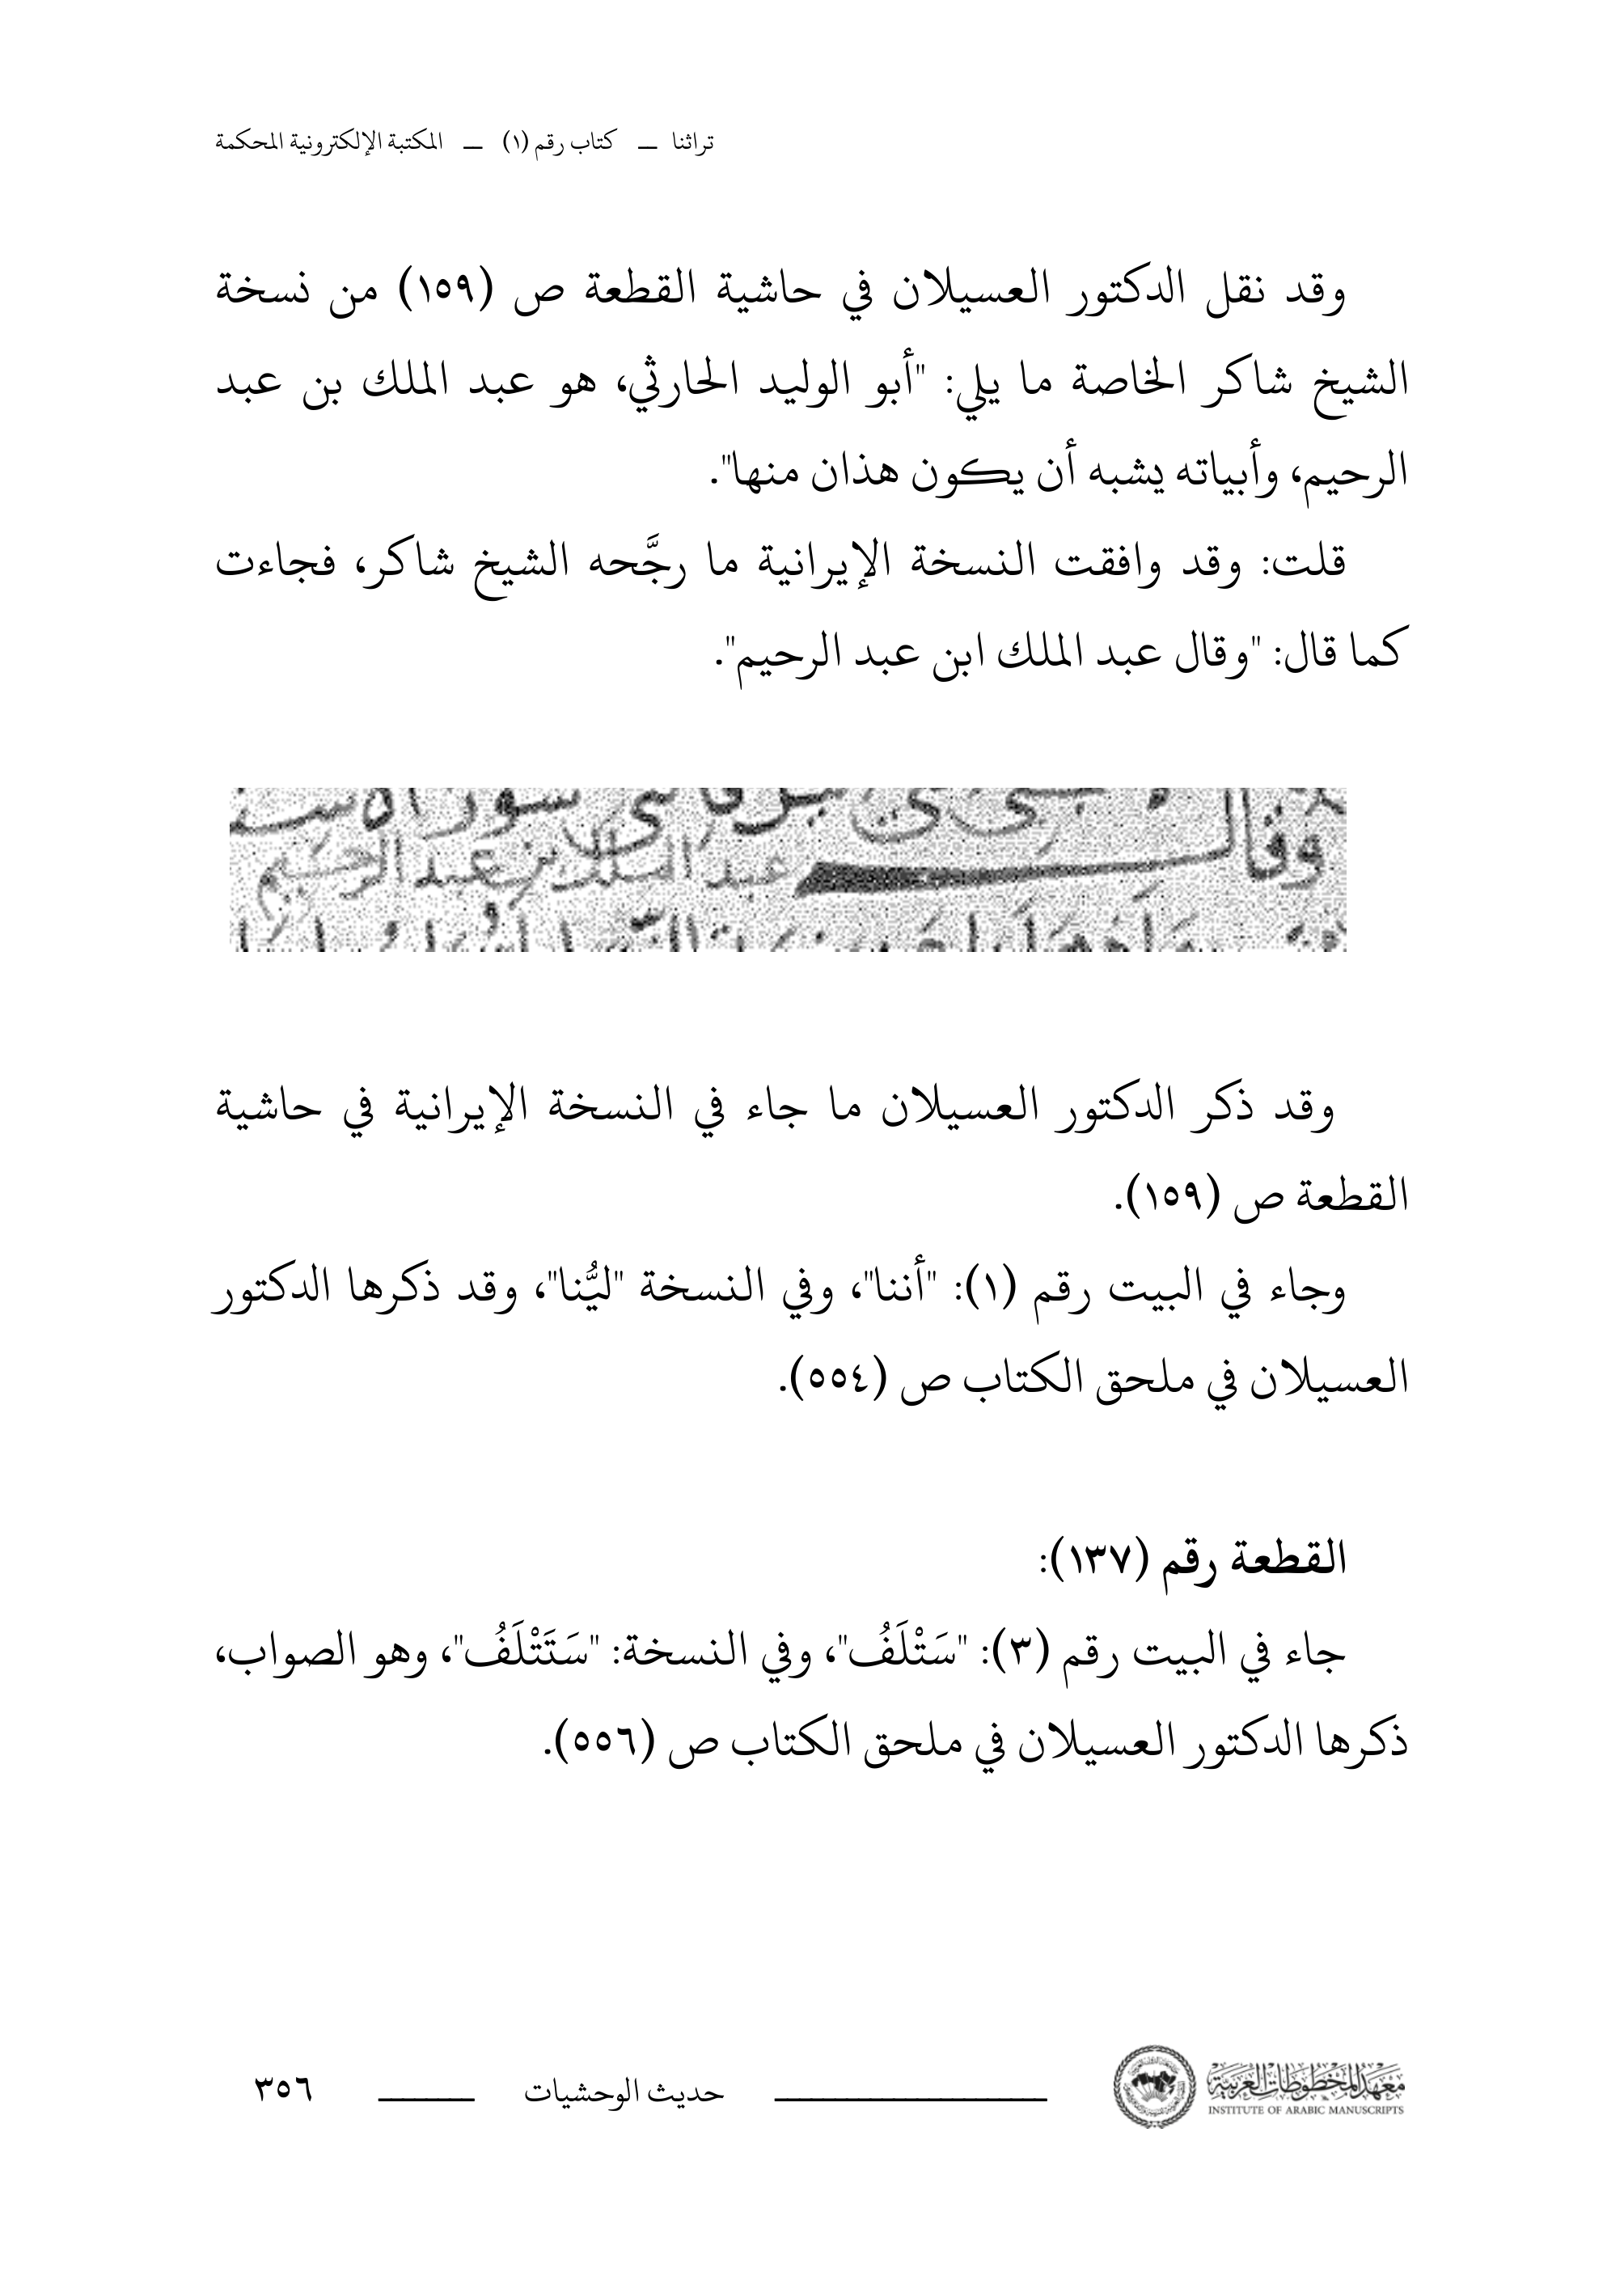 تراثنا — كتاب رقم (١) — المكتبة الإلكترونية المحكمة
وقد نقل الدكتور العسيلان في حاشية القطعة ص (١٥٩) من نسخة
الشيخ شاكر الخاصة ما يلي: "أبو الوليد الحارثي، هو عبد الملك بن عبد
الرحيم، وأبياته يشبه أن يكون هذان منها".
قلت: وقد وافقت النسخة الإيرانية ما رجَّحه الشيخ شاكر، فجاءت
كما قال: "وقال عبد الملك ابن عبد الرحيم".
وقال عبد الملك بن عبد الرحيم
وقد ذكر الدكتور العسيلان ما جاء في النسخة الإيرانية في حاشية
القطعة ص (١٥٩).
وجاء في البيت رقم (١): "أننا"، وفي النسخة "ليُّنا"، وقد ذكرها الدكتور
العسيلان في ملحق الكتاب ص (٥٥٤).
القطعة رقم (١٣٧):
جاء في البيت رقم (٣): "سَتْلَفُ"، وفي النسخة: "سَتَتْلَفُ"، وهو الصواب،
ذكرها الدكتور العسيلان في ملحق الكتاب ص (٥٥٦).
معهد المخطوطات العربية
INSTITUTE OF ARABIC MANUSCRIPTS
حديث الوحشيات
٣٥٦